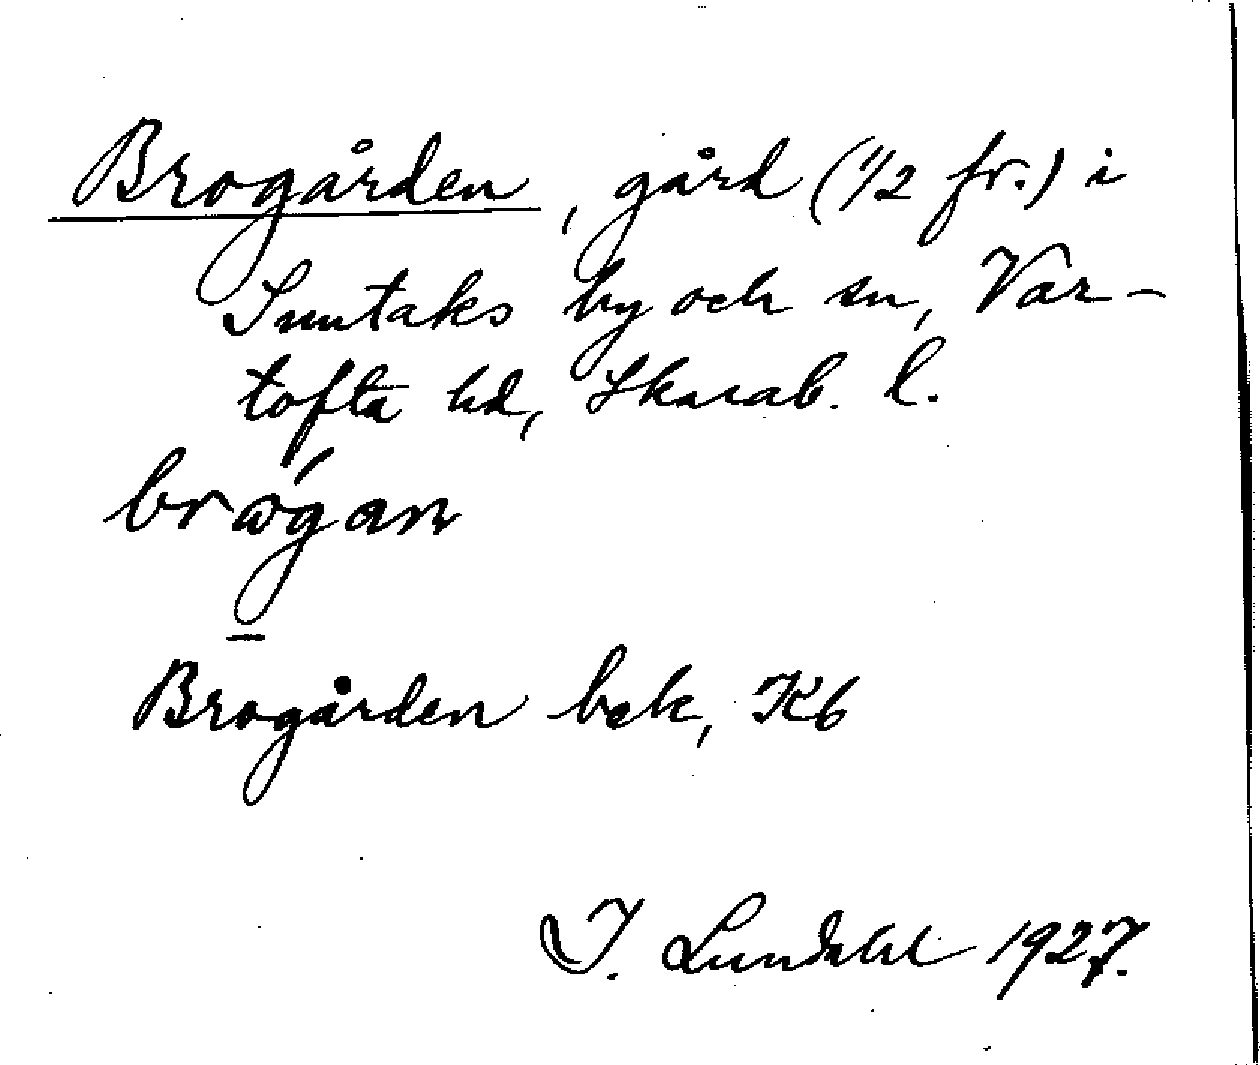 Brogården, gård (1/2 fr.) i
Suntaks by och sn, Var-
tofta hd, Skarab. l.
brógan
Brogården bek, Kb
I. Lundahl 1927.